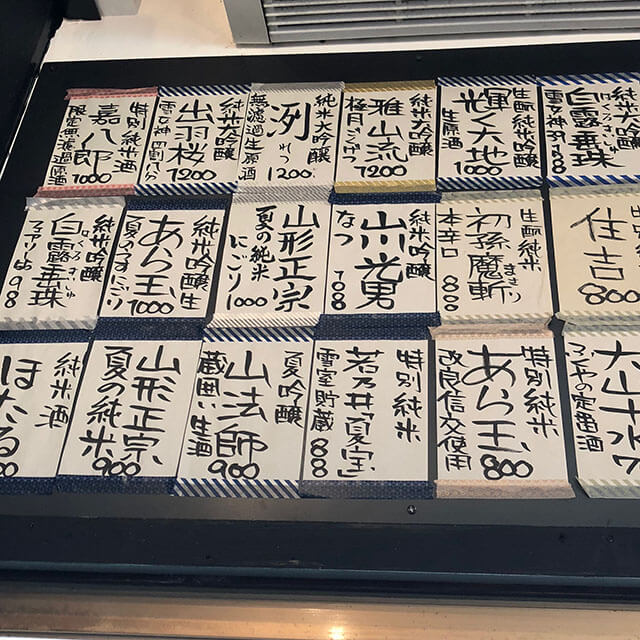 特別純米酒
嘉八郎
限定無濾過原酒
1000
純米大吟醸
出羽桜
1200
純米大吟醸
洌
れつ
無濾過生原酒
1200
純米大吟醸
雅山流
極月
1200
生酛純米吟醸
輝く大地
生原酒
1000
白露垂珠
純米吟醸
白露垂珠
はくろすいしゅ
純米吟醸生
あら玉
夏のうすにごり
1000
山形正宗
夏の純米
にごり
1000
純米吟醸
山川光男
なつ
生酛純米
初孫魔斬
まきり
本辛口
800
住吉
800
純米酒
ほたる
山形正宗
夏の純米
900
夏吟醸
山法師
蔵囲い生酒
900
特別純米
若乃井夏宝
雪室貯蔵
特別純米
あら玉
改良信交使用
800
大山十水
の定番酒